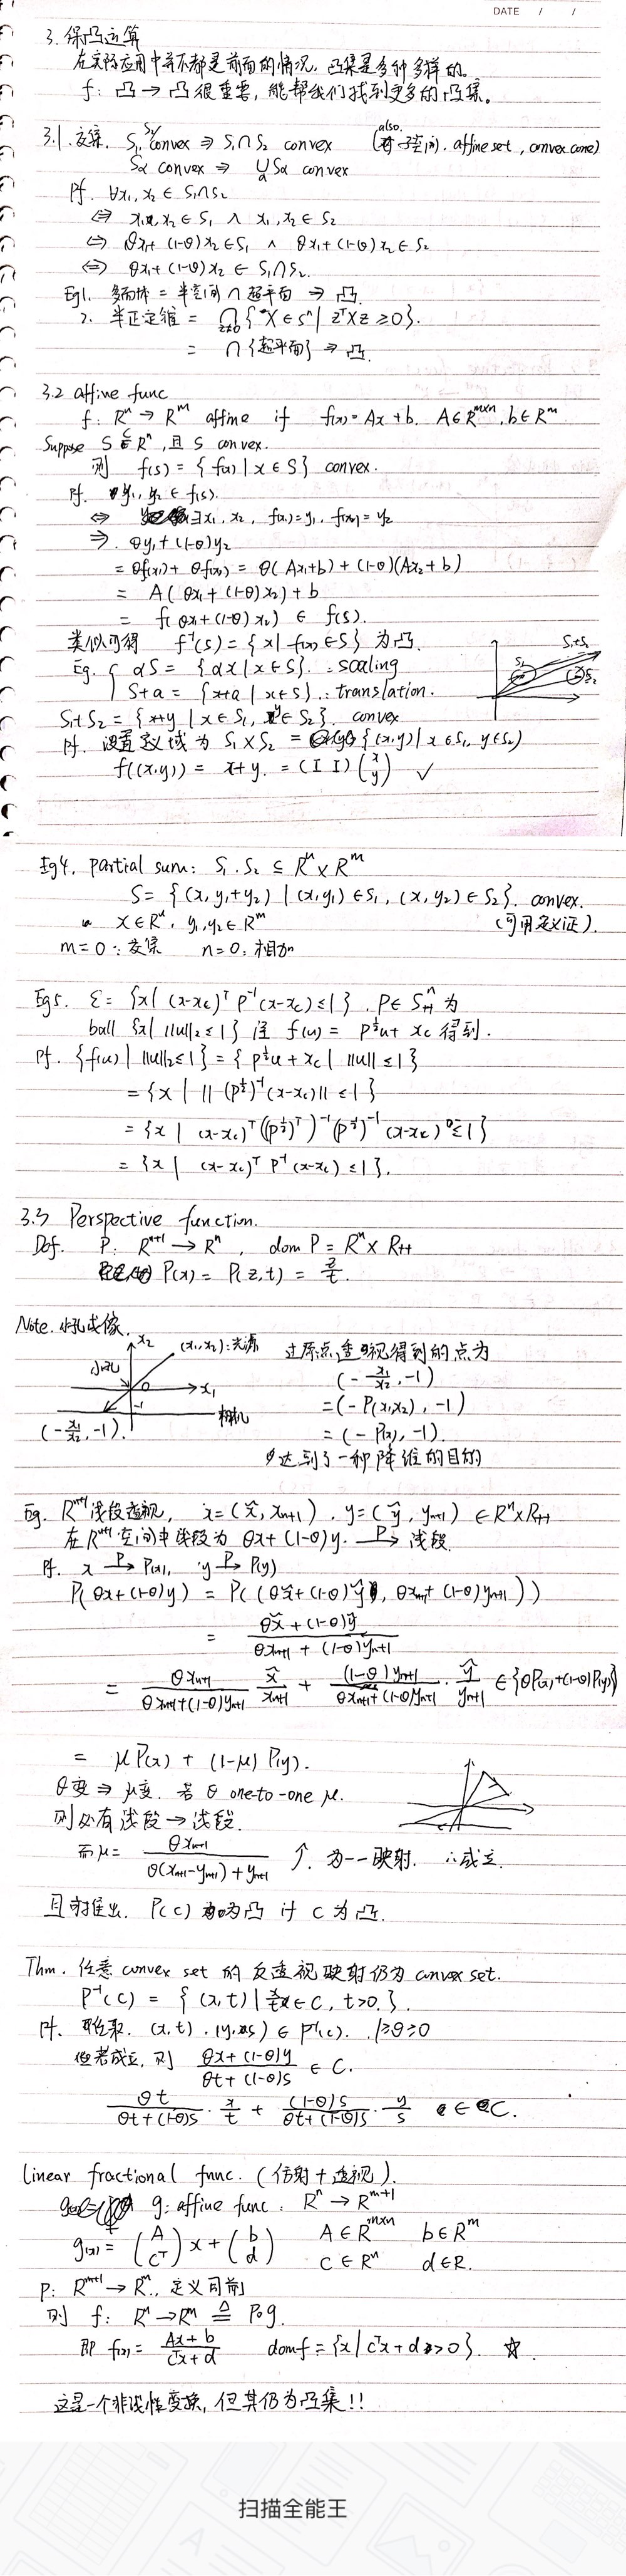 DATE / /
3. 保凸运算
在实际应用中并不都是前面的情况,凸集是多种多样的。
f: 凸→凸很重要,能帮我们找到更多的凸集。
3.1. 交集. S₁,S₂ convex ⇒ S₁∩S₂ convex (also. 子空间, affine set, convex cone)
Sα convex ⇒ ⋃α Sα convex
Pf. ∀x₁, x₂ ∈ S₁∩S₂
⇔ x₁, x₂ ∈ S₁ ∧ x₁, x₂ ∈ S₂
⇔ θx₁+(1-θ)x₂ ∈ S₁ ∧ θx₁+(1-θ)x₂ ∈ S₂
⇔ θx₁+(1-θ)x₂ ∈ S₁∩S₂.
Eg1. 多面体 = 半空间 ∩ 超平面 ⇒ 凸.
2. 半正定锥 = ⋂z≠0 {X ∈ Sⁿ | zᵀXz ≥ 0}.
= ∩{超平面} ⇒ 凸.
3.2 affine func
f: Rⁿ → Rᵐ affine if f(x) = Ax+b. A∈Rᵐˣⁿ, b∈Rᵐ
Suppose S ⊆ Rⁿ, 且 S convex.
则 f(S) = {f(x) | x ∈ S} convex.
Pf. y₁, y₂ ∈ f(S).
⇔ ∃x₁, x₂, f(x₁)=y₁, f(x₂)=y₂
⇒. θy₁+(1-θ)y₂
= θf(x₁) + θf(x₂) = θ(Ax₁+b) + (1-θ)(Ax₂+b)
= A(θx₁+(1-θ)x₂)+b
= f(θx₁+(1-θ)x₂) ∈ f(S).
类似可得 f⁻¹(S) = {x | f(x)∈S} 为凸.
Eg. { αS = {αx | x∈S}. : scaling
S+a = {x+a | x∈S}. : translation.
S₁+S₂
S₁
S₂
S₁+S₂ = {x+y | x∈S₁, y∈S₂}. convex
Pf. 设置定义域为 S₁×S₂ = {(x,y) | x∈S₁, y∈S₂}
f((x,y)) = x+y. = (I I)(x y) ✓
Eg4. partial sum: S₁, S₂ ⊆ Rⁿ×Rᵐ
S = {(x, y₁+y₂) | (x,y₁)∈S₁, (x,y₂)∈S₂}. convex.
x∈Rⁿ, y₁,y₂∈Rᵐ (可用定义证).
m=0: 交集 n=0: 相加
Eg5. ℰ = {x | (x-xc)ᵀ P⁻¹(x-xc) ≤ 1}. P∈Sⁿ₊₊ 为
ball {x | ||u||₂ ≤ 1} 经 f(u) = P^½u + xc 得到.
Pf. {f(u) | ||u||₂≤1} = {P^½u+xc | ||u||≤1}
= {x | ||(P^½)⁻¹(x-xc)|| ≤ 1}
= {x | (x-xc)ᵀ((P^½)ᵀ)⁻¹(P^½)⁻¹(x-xc) ≤ 1}
= {x | (x-xc)ᵀ P⁻¹(x-xc) ≤ 1}.
3.3 Perspective function.
Def. P: Rⁿ⁺¹ → Rⁿ, dom P = Rⁿ×R₊₊
P(x) = P(z,t) = z/t.
Note. 小孔成像.
x₂
(x₁,x₂): 光源
小孔
0
x₁
-1
相机
(-x₁/x₂, -1).
过原点透视得到的点为
(-x₁/x₂, -1)
= (-P(x₁,x₂), -1)
= (-P(x), -1).
达到了一种降维的目的
Eg. Rⁿ⁺¹ 线段透视, x=(x̃, xₙ₊₁), y=(ỹ, yₙ₊₁) ∈ Rⁿ×R₊₊
在 Rⁿ⁺¹ 空间中线段为 θx+(1-θ)y. →P 线段.
Pf. x →P P(x), y →P P(y)
P(θx+(1-θ)y) = P((θx̃+(1-θ)ỹ, θxₙ₊₁+(1-θ)yₙ₊₁))
= (θx̃+(1-θ)ỹ)/(θxₙ₊₁+(1-θ)yₙ₊₁)
= θxₙ₊₁/(θxₙ₊₁+(1-θ)yₙ₊₁) · x̃/xₙ₊₁ + (1-θ)yₙ₊₁/(θxₙ₊₁+(1-θ)yₙ₊₁) · ỹ/yₙ₊₁ ∈ {θP(x)+(1-θ)P(y)}
= μP(x) + (1-μ)P(y).
θ变 ⇒ μ变. 若 θ one-to-one μ.
则必有线段→线段.
而 μ = θxₙ₊₁/(θ(xₙ₊₁-yₙ₊₁)+yₙ₊₁) ↑. 为一一映射. ∴成立.
且可推出. P(C) 为凸 if C 为凸.
Thm. 任意 convex set 的反透视映射仍为 convex set.
P⁻¹(C) = {(x,t) | x/t ∈ C, t>0.}.
Pf. 取 (x,t), (y,s) ∈ P⁻¹(C). 1≥θ≥0
若成立, 则 (θx+(1-θ)y)/(θt+(1-θ)s) ∈ C.
θt/(θt+(1-θ)s) · x/t + (1-θ)s/(θt+(1-θ)s) · y/s ∈ C.
Linear fractional func. (仿射+透视).
g: affine func. Rⁿ → Rᵐ⁺¹
g(x) = (A cᵀ)x + (b d) A∈Rᵐˣⁿ b∈Rᵐ
c∈Rⁿ d∈R.
P: Rᵐ⁺¹ → Rᵐ, 定义同前
则 f: Rⁿ→Rᵐ ≜ P∘g.
即 f(x) = (Ax+b)/(cᵀx+d) dom f = {x | cᵀx+d>0}. ☆.
这是一个非线性变换, 但其仍为凸集!!
扫描全能王